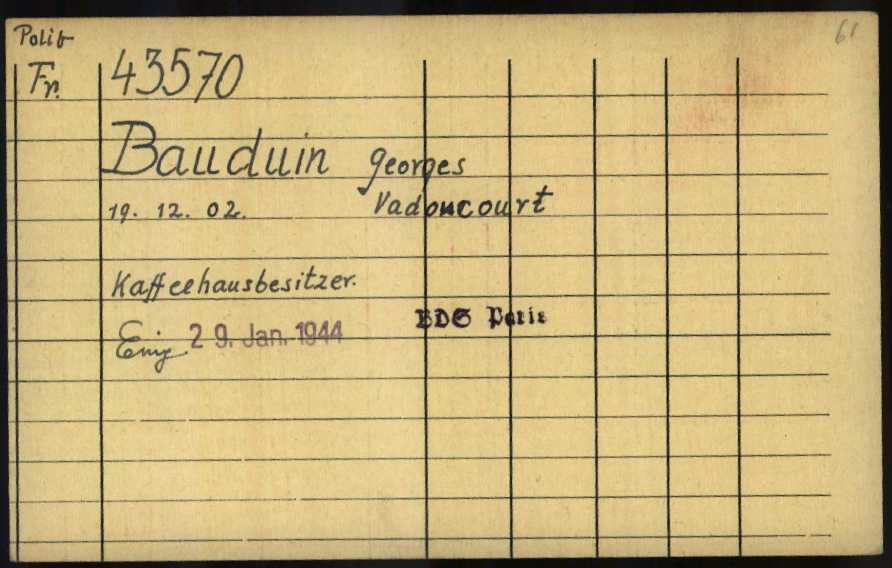 Polit 61
Fr. 43570
Bauduin Georges
19. 12. 02. Vadoncourt
Kaffeehausbesitzer.
Eing 29. Jan. 1944 BDS Paris